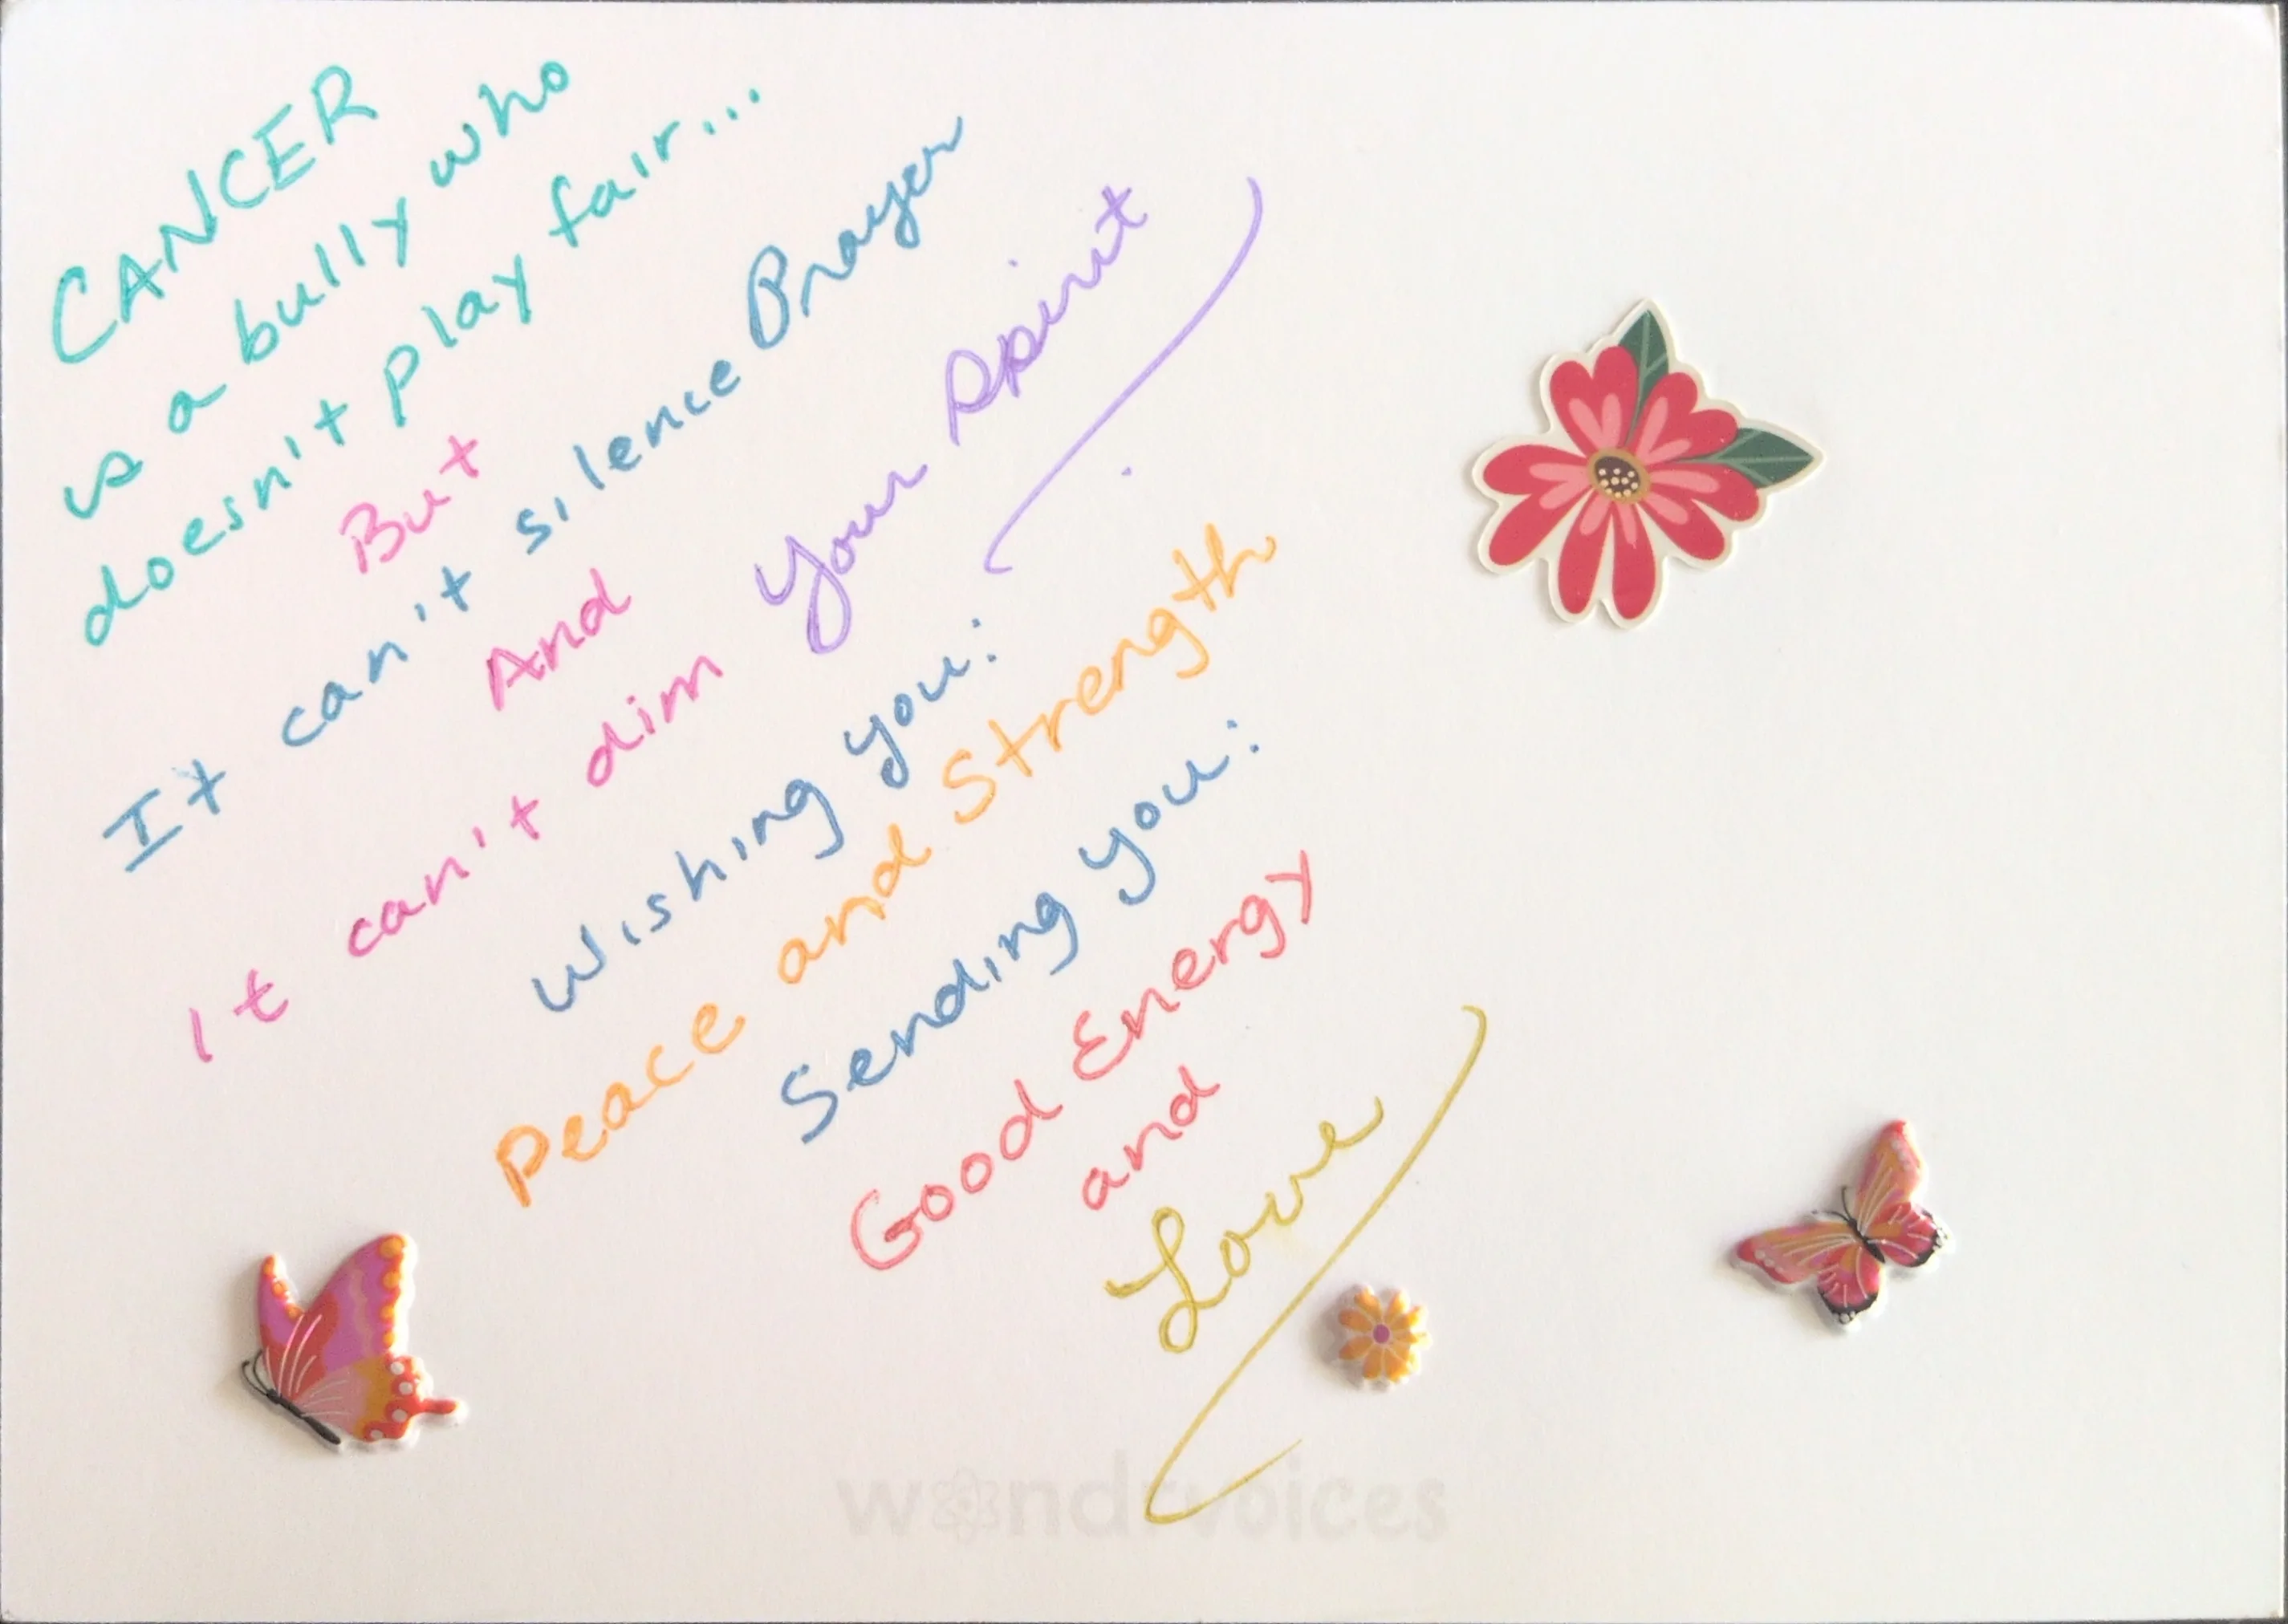 CANCER
is a bully who
doesn't play fair...
But
It can't silence Prayer
And
It can't dim Your Spirit
Wishing you:
Peace and Strength
Sending you:
Good Energy
and
Love
wondrvoices